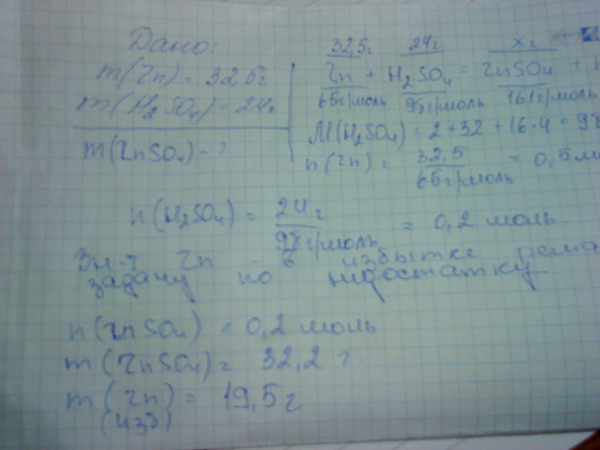 Дано:
m(Zn) = 32,5г
m(H₂SO₄) = 24г
m(ZnSO₄) - ?
32,5г 24г xг
Zn + H₂SO₄ = ZnSO₄ +
65г/моль 98г/моль 161г/моль
M(H₂SO₄) = 2 + 32 + 16·4 + 98
n(Zn) = 32,5 / 65г/моль = 0,5 м
n(H₂SO₄) = 24г / 98г/моль = 0,2 моль
Zn - в избытке реша
задачу по недостатку
n(ZnSO₄) = 0,2 моль
m(ZnSO₄) = 32,2 г
m(Zn) = 19,5г
(изб)